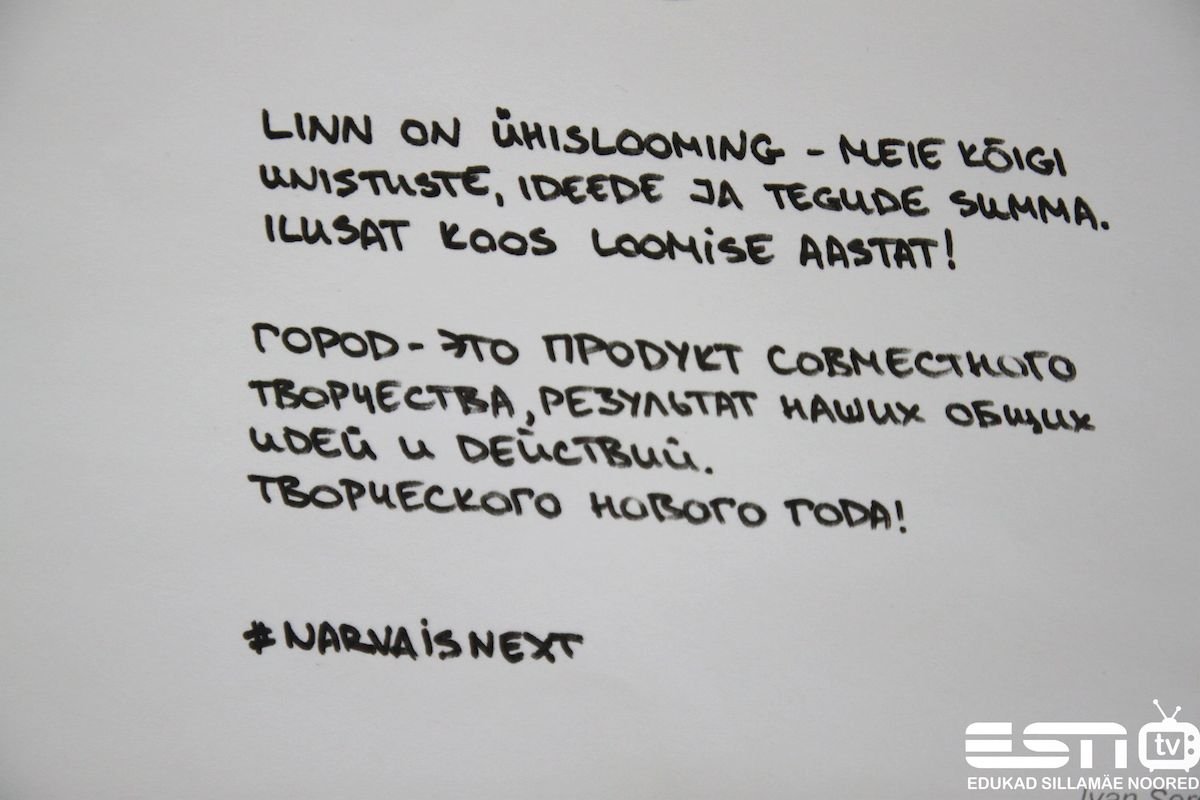 LINN ON ÜHISLOOMING - MEIE KÕIGI
UNISTUSTE, IDEEDE JA TEGUDE SUMMA.
ILUSAT KOOS LOOMISE AASTAT!
ГОРОД - ЭТО ПРОДУКТ СОВМЕСТНОГО
ТВОРЧЕСТВА, РЕЗУЛЬТАТ НАШИХ ОБЩИХ
ИДЕЙ И ДЕЙСТВИЙ.
ТВОРЧЕСКОГО НОВОГО ГОДА!
#NARVAISNEXT
ESN tv
EDUKAD SILLAMÄE NOORED
Ivan